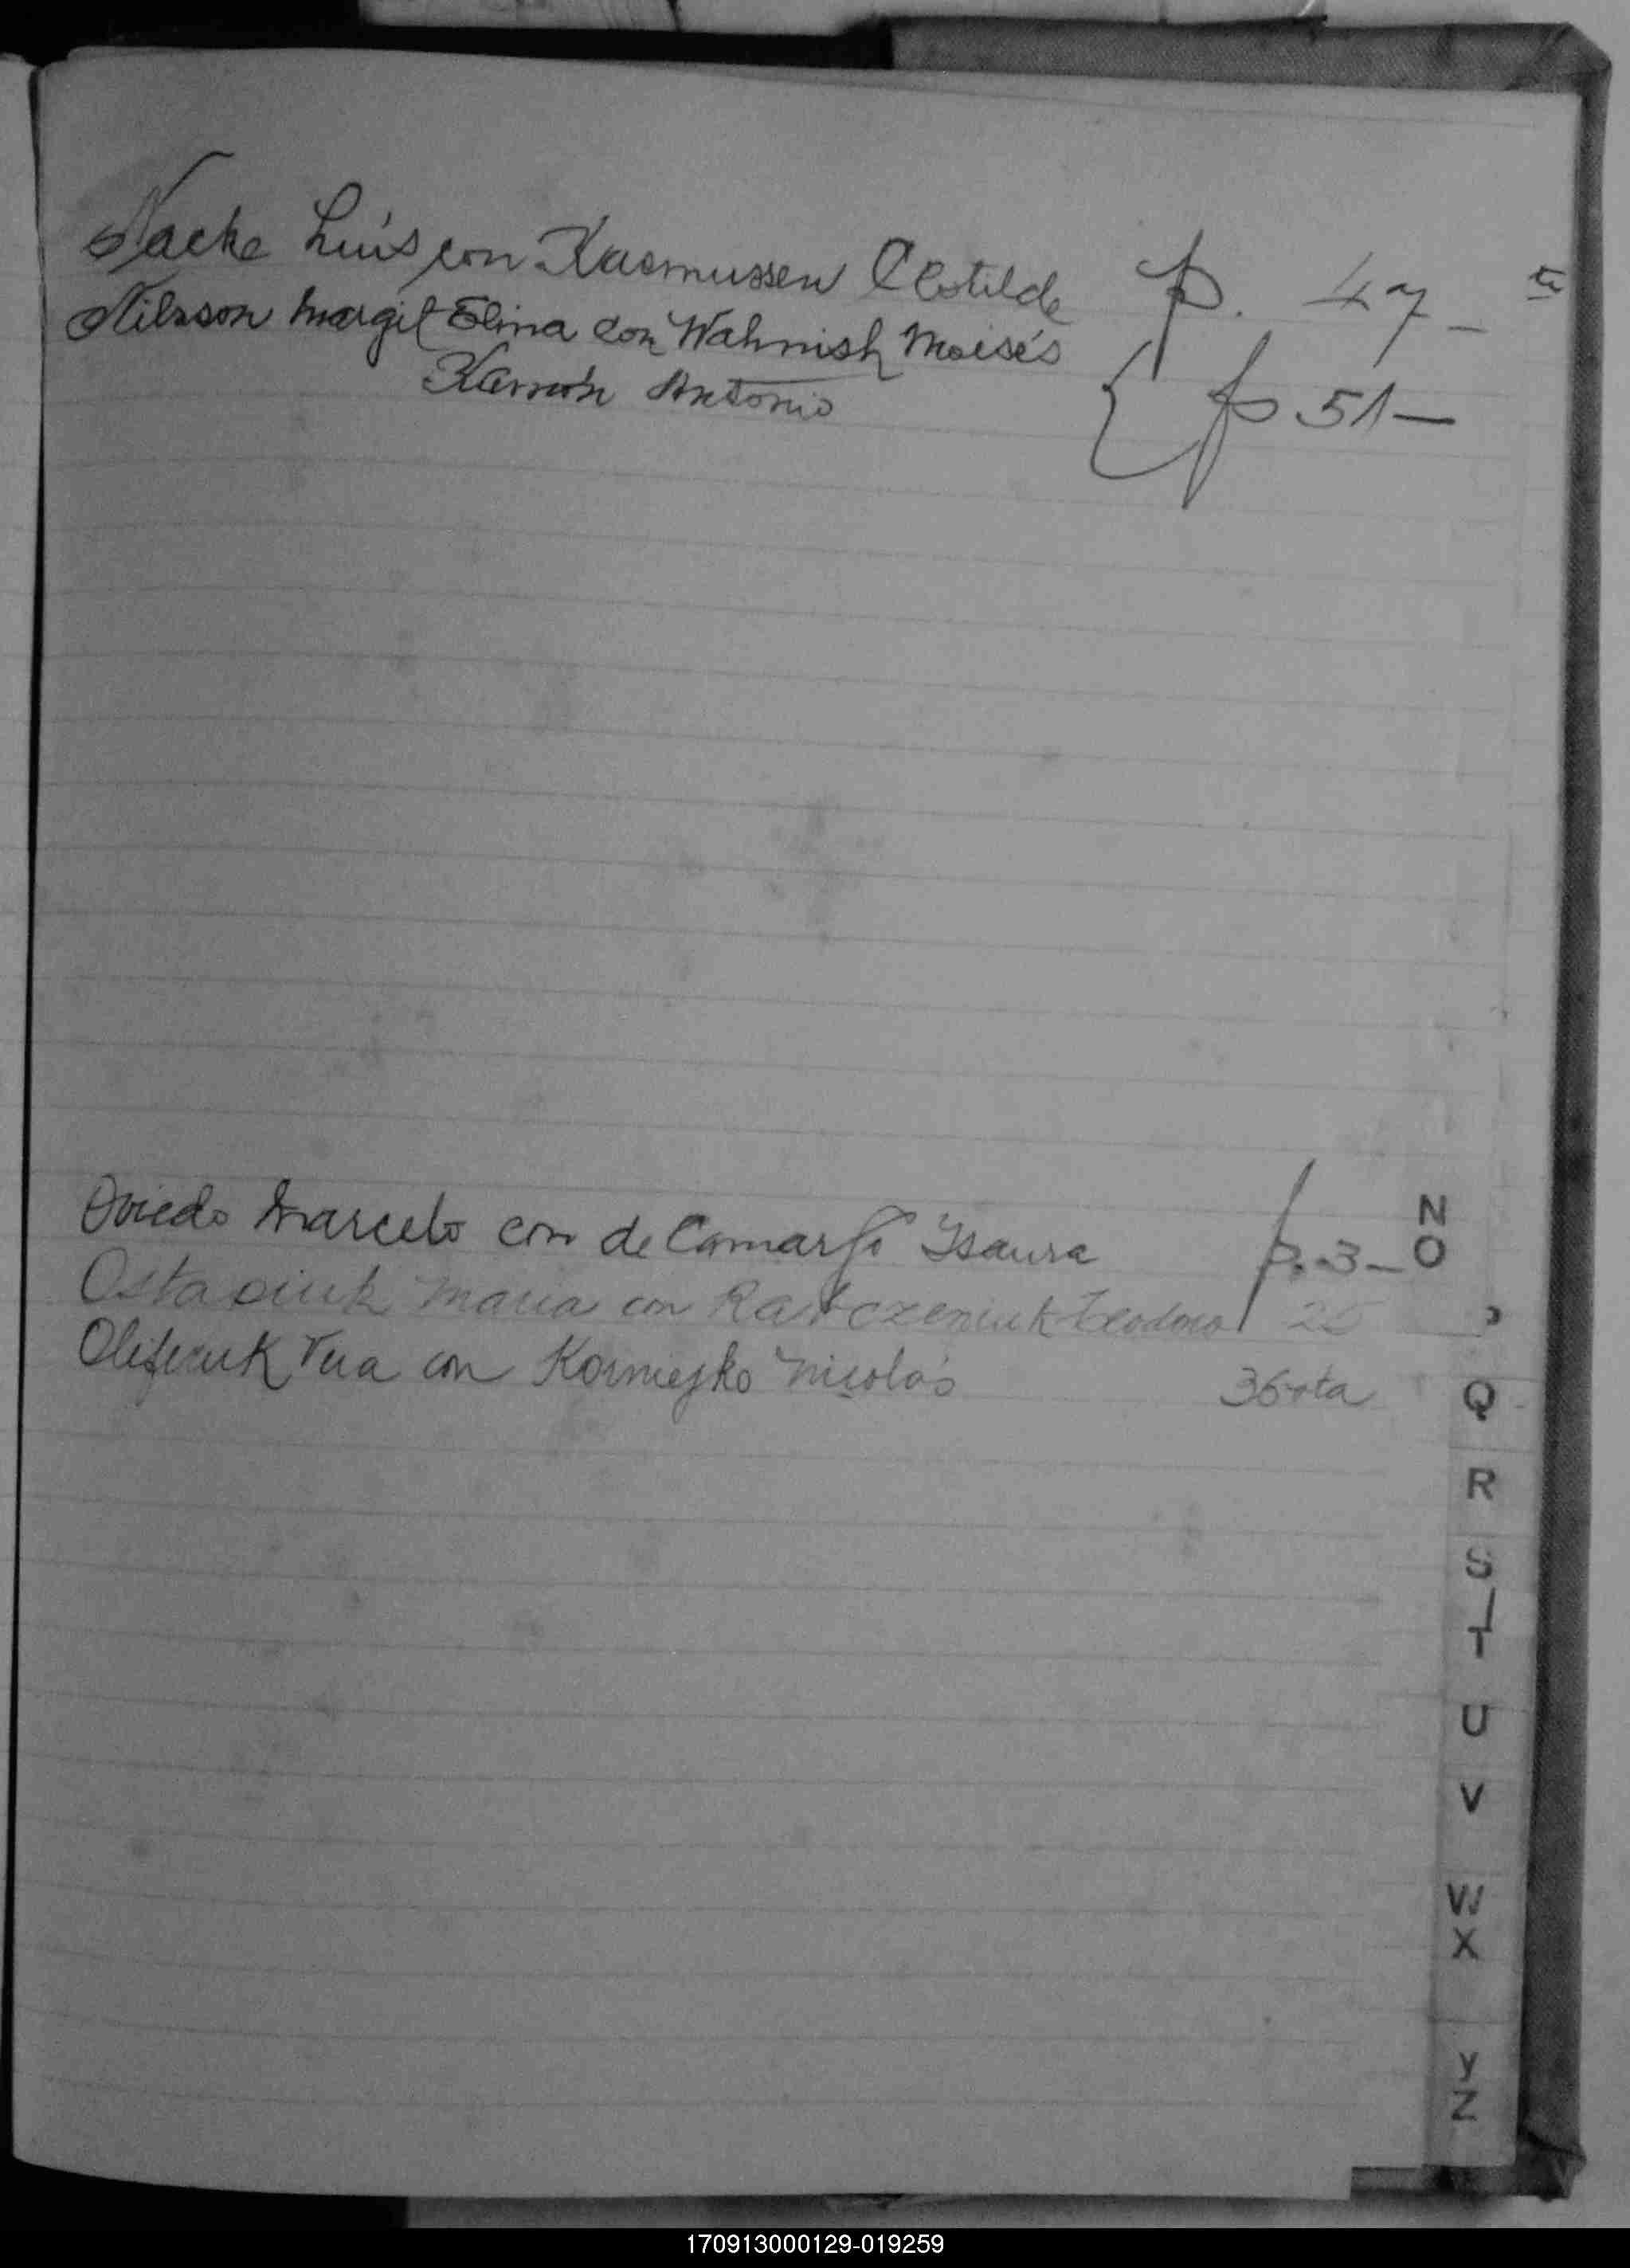 Nacke Luis con Rasmussen Clotilde p. 47 –
Nilsson Margit Elina con Wahnish Moisés
Ramón Antonio { p 51 –
Oviedo Marcelo con de Camargo Ysaura p. 3 –
Ostapiuk Maria con Teodoro 25
Oliferuk Vera con Korniejko Nicolás 36 vta
N
O
Q
R
S
T
U
V
W
X
Y
Z
170913000129-019259